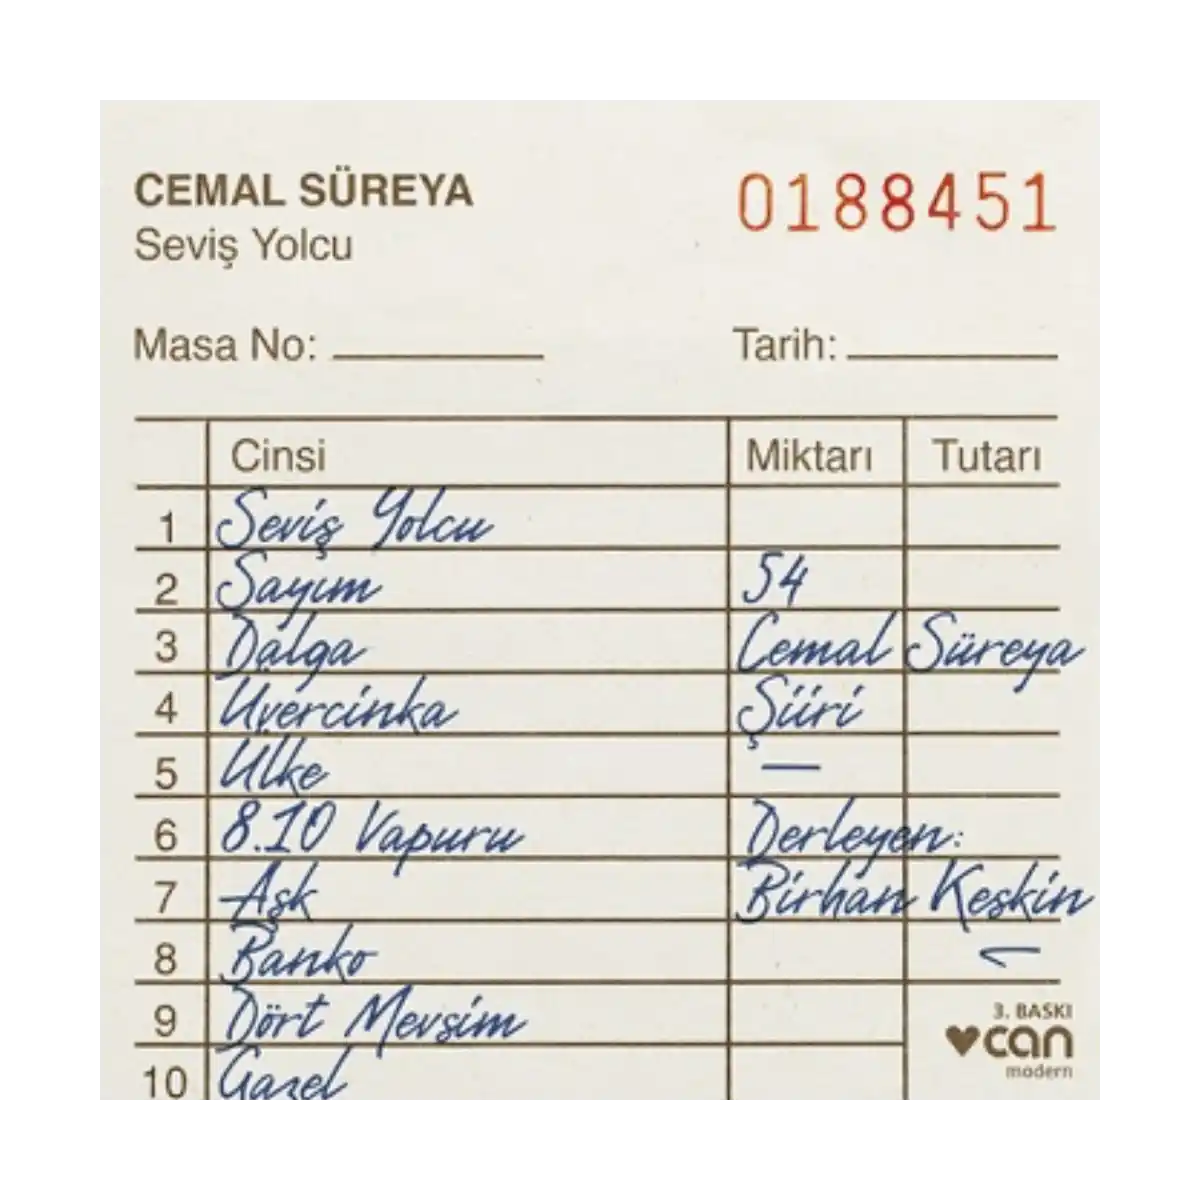 CEMAL SÜREYA 0188451
Seviş Yolcu
Masa No: Tarih:
Cinsi Miktarı Tutarı
1 Seviş Yolcu
2 Sayım 54
3 Dalga Cemal Süreya
4 Üvercinka Şiiri
5 Ülke —
6 8.10 Vapuru Derleyen:
7 Aşk Birhan Keskin
8 Banko
9 Dört Mevsim 3. BASKI
can
modern
10 Gazel